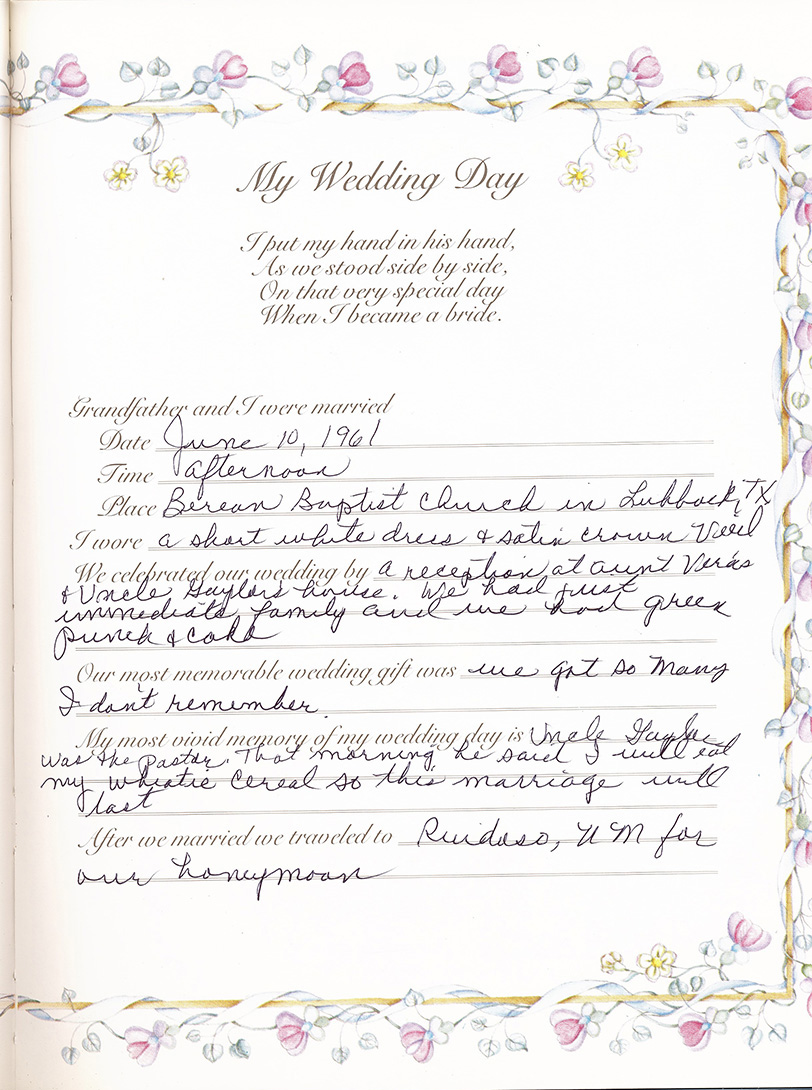 My Wedding Day
I put my hand in his hand,
As we stood side by side,
On that very special day
When I became a bride.
Grandfather and I were married
Date June 10, 1961
Time afternoon
Place Berean Baptist Church in Lubbock, TX
I wore a short white dress & satin crown Veil
We celebrated our wedding by a reception at aunt Vera's
& Uncle Gaylor's house. We had just
immediate family and we had green
punch & cake
Our most memorable wedding gift was we got so many
I don't remember
My most vivid memory of my wedding day is Uncle Gaylor
was the Pastor. That morning he said I will eat
my wheatie cereal so this marriage will
last
After we married we traveled to Ruidoso, N M for
our honeymoon